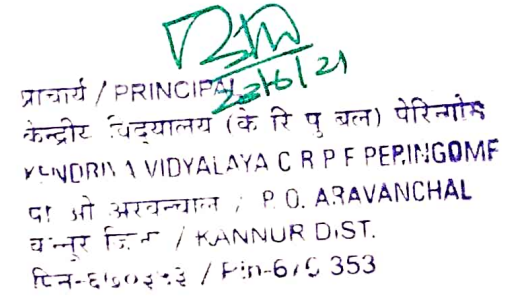 23/6/21
प्राचार्य / PRINCIPAL
केन्द्रीय विद्यालय (के रि पु बल) पेरिन्गोम
KENDRIYA VIDYALAYA C R P F PERINGOME
पी ओ अरवन्चाल / P. O. ARAVANCHAL
कन्नूर जिला / KANNUR DIST.
पिन-६७०३५३ / Pin-670 353